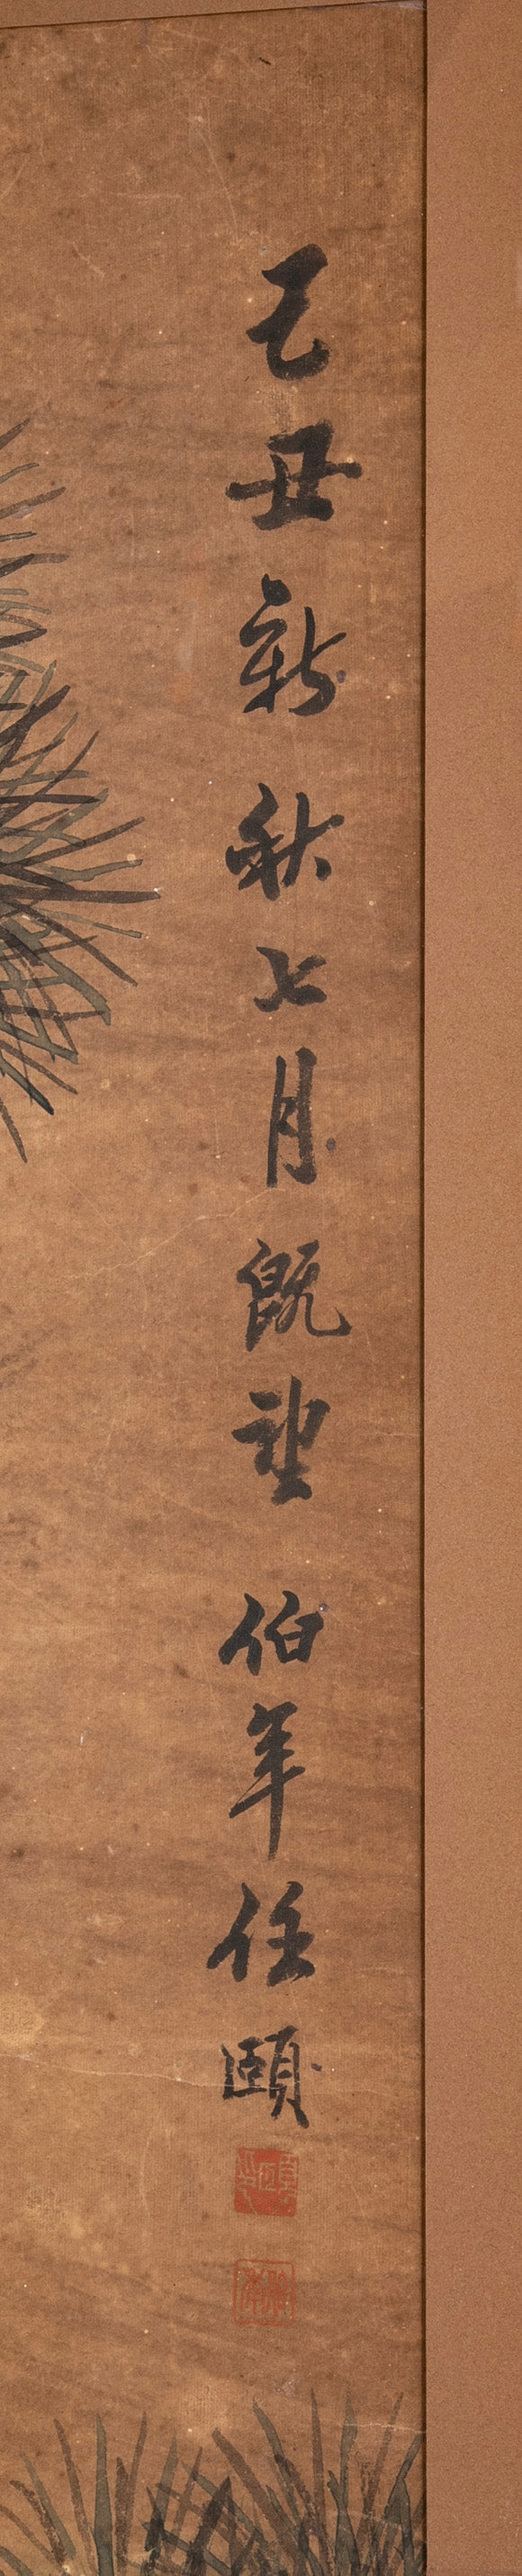 乙丑新秋七月既望 伯年任頤